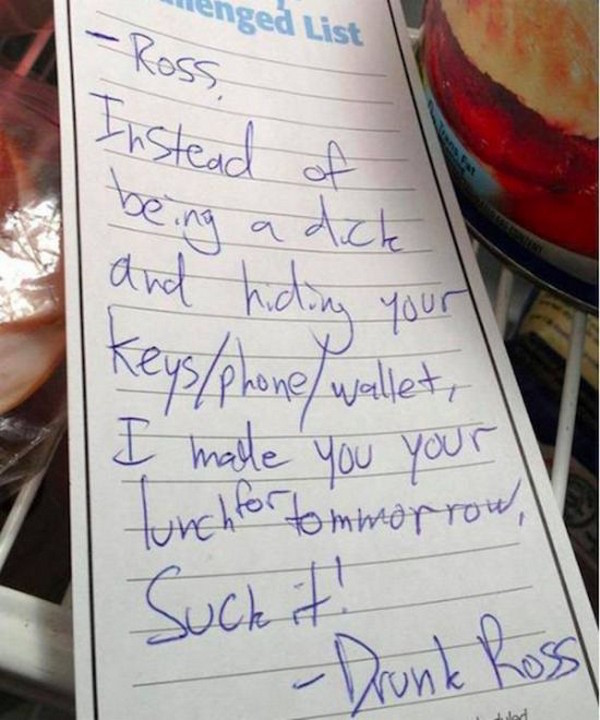 enged List
- Ross,
Instead of
being a dick
and hiding your
keys/phone/wallet,
I made you your
lunch for tommorrow,
Suck it!
- Drunk Ross